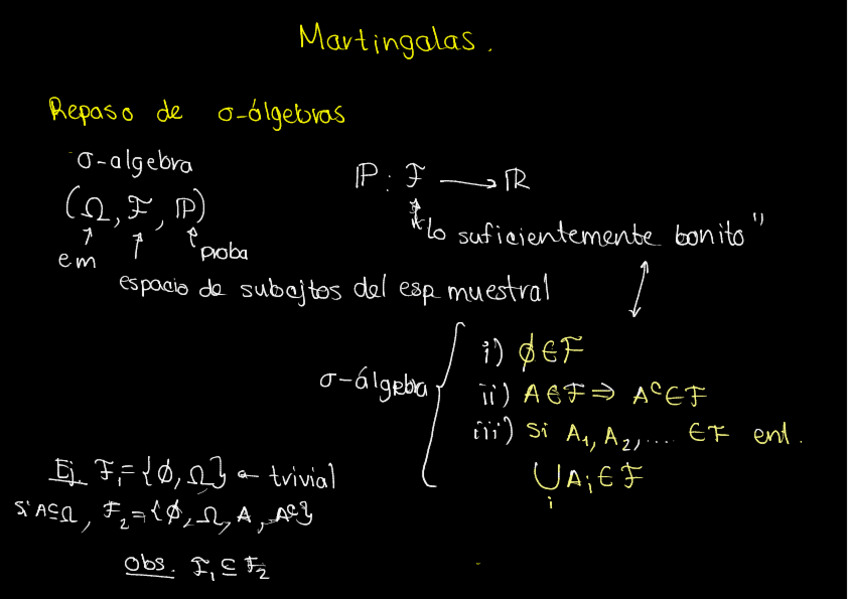 Martingalas.
Repaso de σ-álgebras
σ-algebra
(Ω, ℱ, ℙ)
em
proba
espacio de subcjtos del esp muestral
ℙ: ℱ ⟶ ℝ
"lo suficientemente bonito"
σ-álgebra
i) ϕ ∈ ℱ
ii) A ∈ ℱ ⇒ Aᶜ ∈ ℱ
iii) si A₁, A₂, ... ∈ ℱ ent.
⋃ᵢ Aᵢ ∈ ℱ
Ej. ℱ₁ = {ϕ, Ω} ← trivial
si A ⊆ Ω, ℱ₂ = {ϕ, Ω, A, Aᶜ}
Obs. ℱ₁ ⊆ ℱ₂